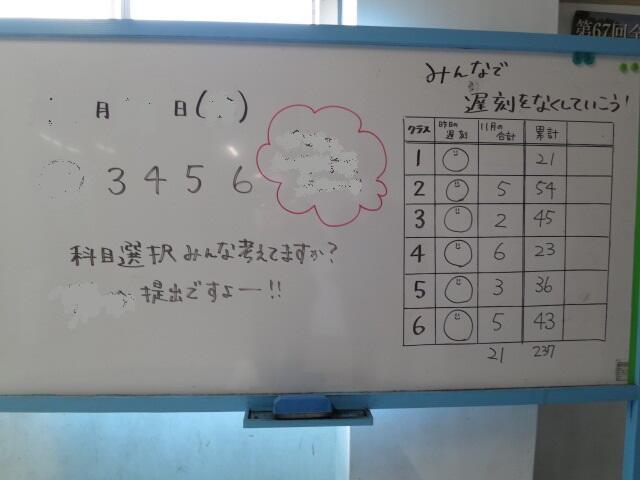 第67回全
月 日( )
3 4 5 6
科目選択みんな考えてますか?
提出ですよー!!
みんなで
遅刻をなくしていこう!
クラス 昨日の遅刻 11月の合計 累計
1 21
2 5 54
3 2 45
4 6 23
5 3 36
6 5 43
21 237